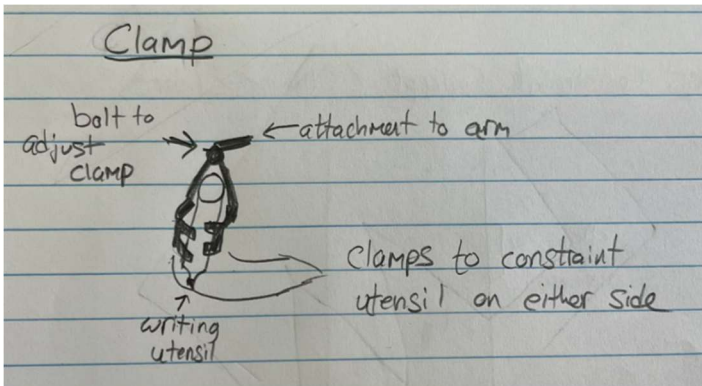 Clamp
bolt to
adjust
clamp
attachment to arm
clamps to constraint
utensil on either side
writing
utensil